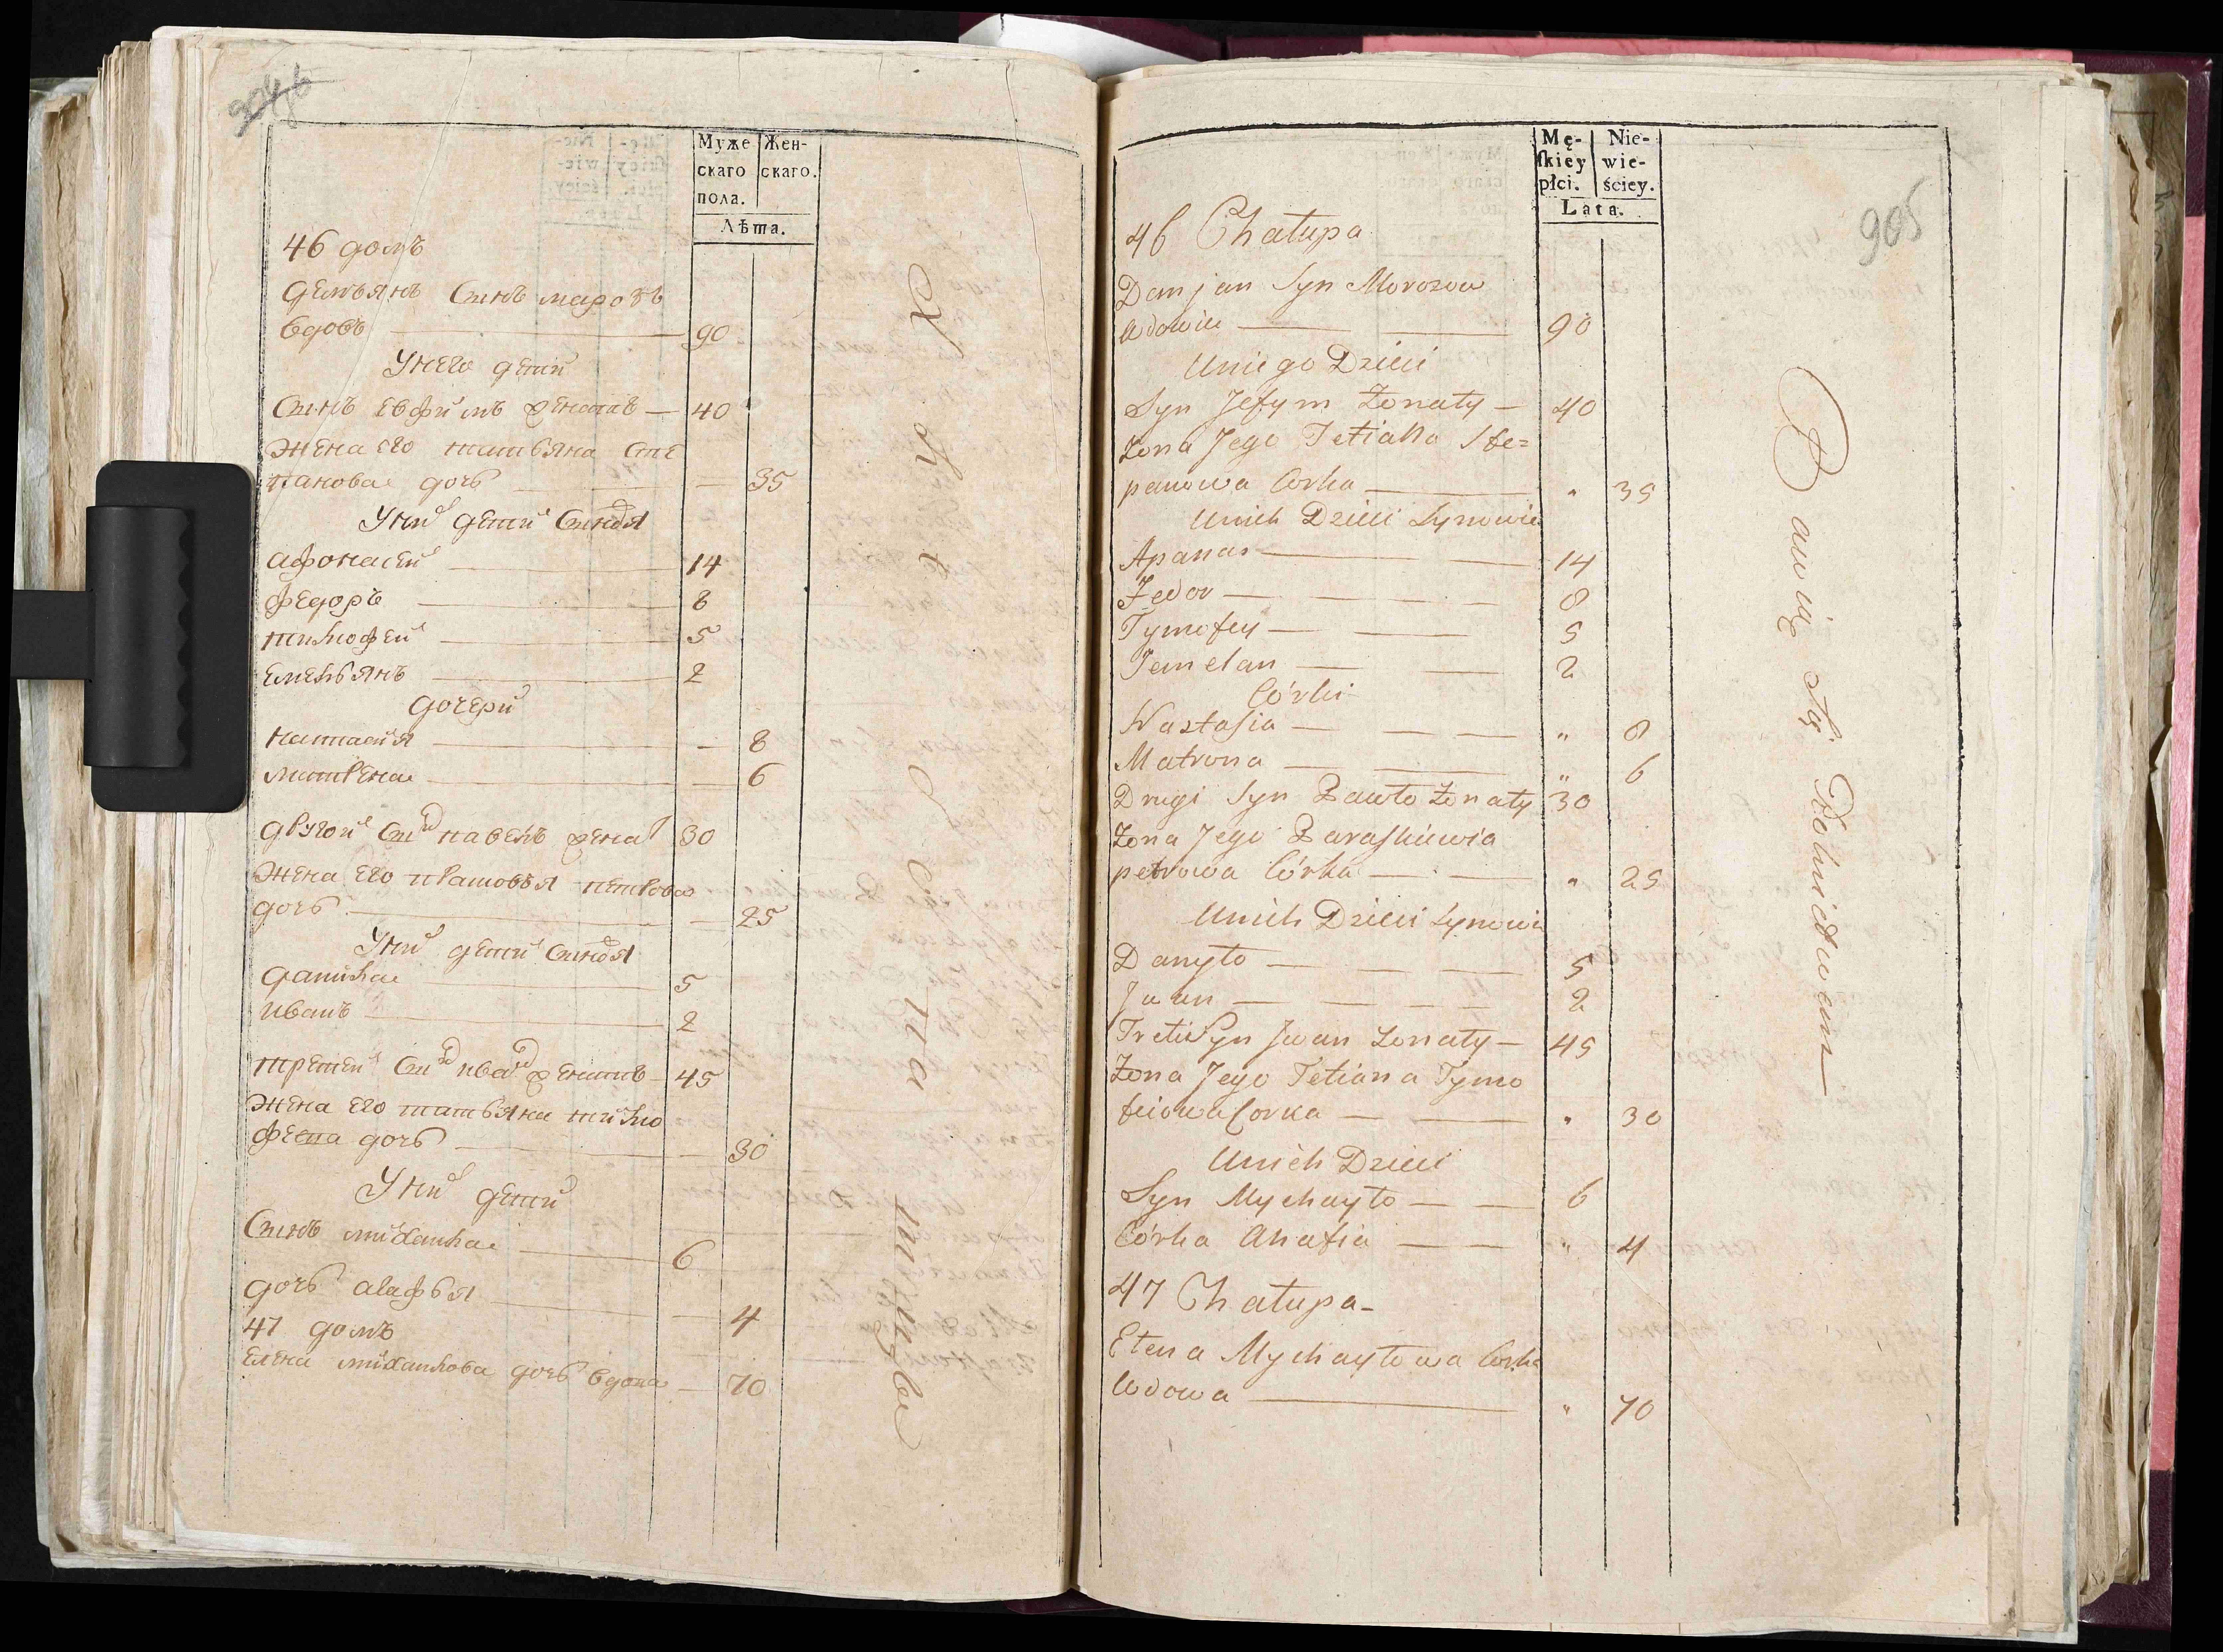 904б
Муже
скаго
пола.
Жен-
скаго.
Лѣта.
46 домъ
Демьянъ Сынъ мароз
вдовъ — 90
У него дети
Сынъ Ефимъ женатъ — 40
Жена его татьяна сте
панова дочь — 35
У ни дети Синовя
афонасей — 14
федоръ — 8
тимофей — 5
емельянъ — 2
дочери
настасия — 8
матрена — 6
другой Син павелъ женат 30
Жена его петрова
дочь — 25
У ни дети Синовя
данила — 5
иванъ — 2
третей Син иван женатъ 45
Жена его татьяна тимо
феева дочь — 30
У ни дети
Синъ михайла — 6
дочь агафья — 4
47 домъ
елена михайлова дочь вдова — 70
905
Mę-
ſkiey
płci.
Nie-
wie-
ściey.
Lata.
46 Chałupa
Damjan Syn Morozow
Wdowiec — 90
Uniego Dzieci
Syn Jefym Żonaty — 40
Żona Jego Tetiana Ste=
panowa Corka — " 35
Unich Dzieci Synowie
Apanas — 14
Fedor — 8
Tymofey — 5
Jemelan — 2
Córki
Nastasia — " 8
Matrona — " 6
Drugi Syn Pawło Żonaty 30
Żona Jego Paraskiewia
petrowa Córka — " 25
Unich Dzieci Synowie
Danyło — 5
Jwan — 2
Treti Syn Jwan Żonaty — 45
Żona Jego Tetiana Tymo
feiowa Corka — " 30
Unich Dzieci
Syn Mychayło — 6
Córka Ahafia — " 4
47 Chałupa
Ełena Mychayłowa Corka
Wdowa — " 70
Bawią Się Rolnictwem